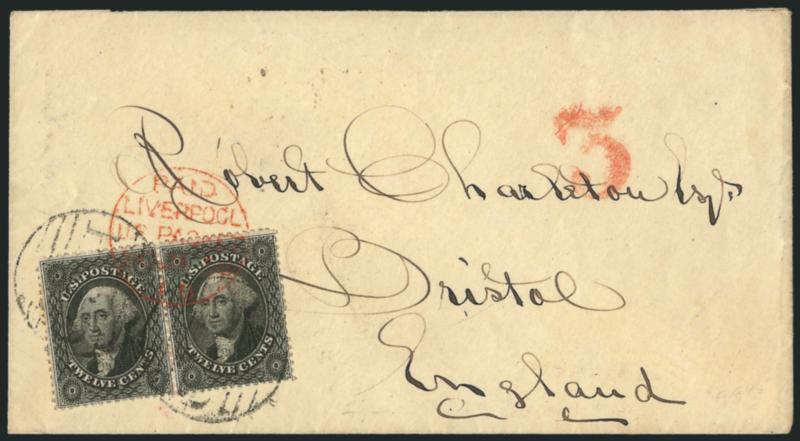 3
Robert Charleton Esqr
Bristol
England
PAID
LIVERPOOL
U.S. PACKET
U.S. POSTAGE
TWELVE CENTS
U.S. POSTAGE
TWELVE CENTS